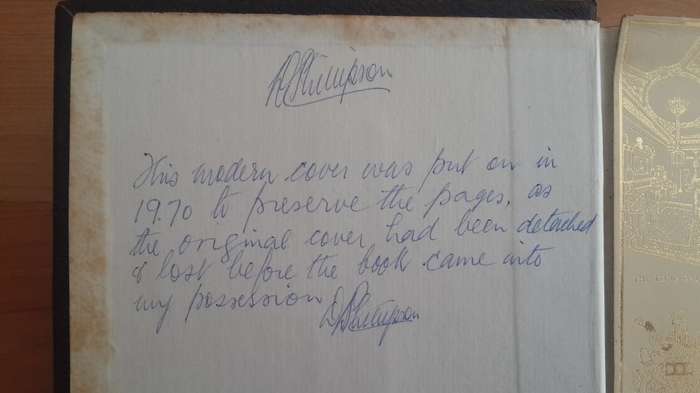 This modern cover was put on in
1970 to preserve the pages, as
the original cover had been detached
& lost before the book came into
my possession